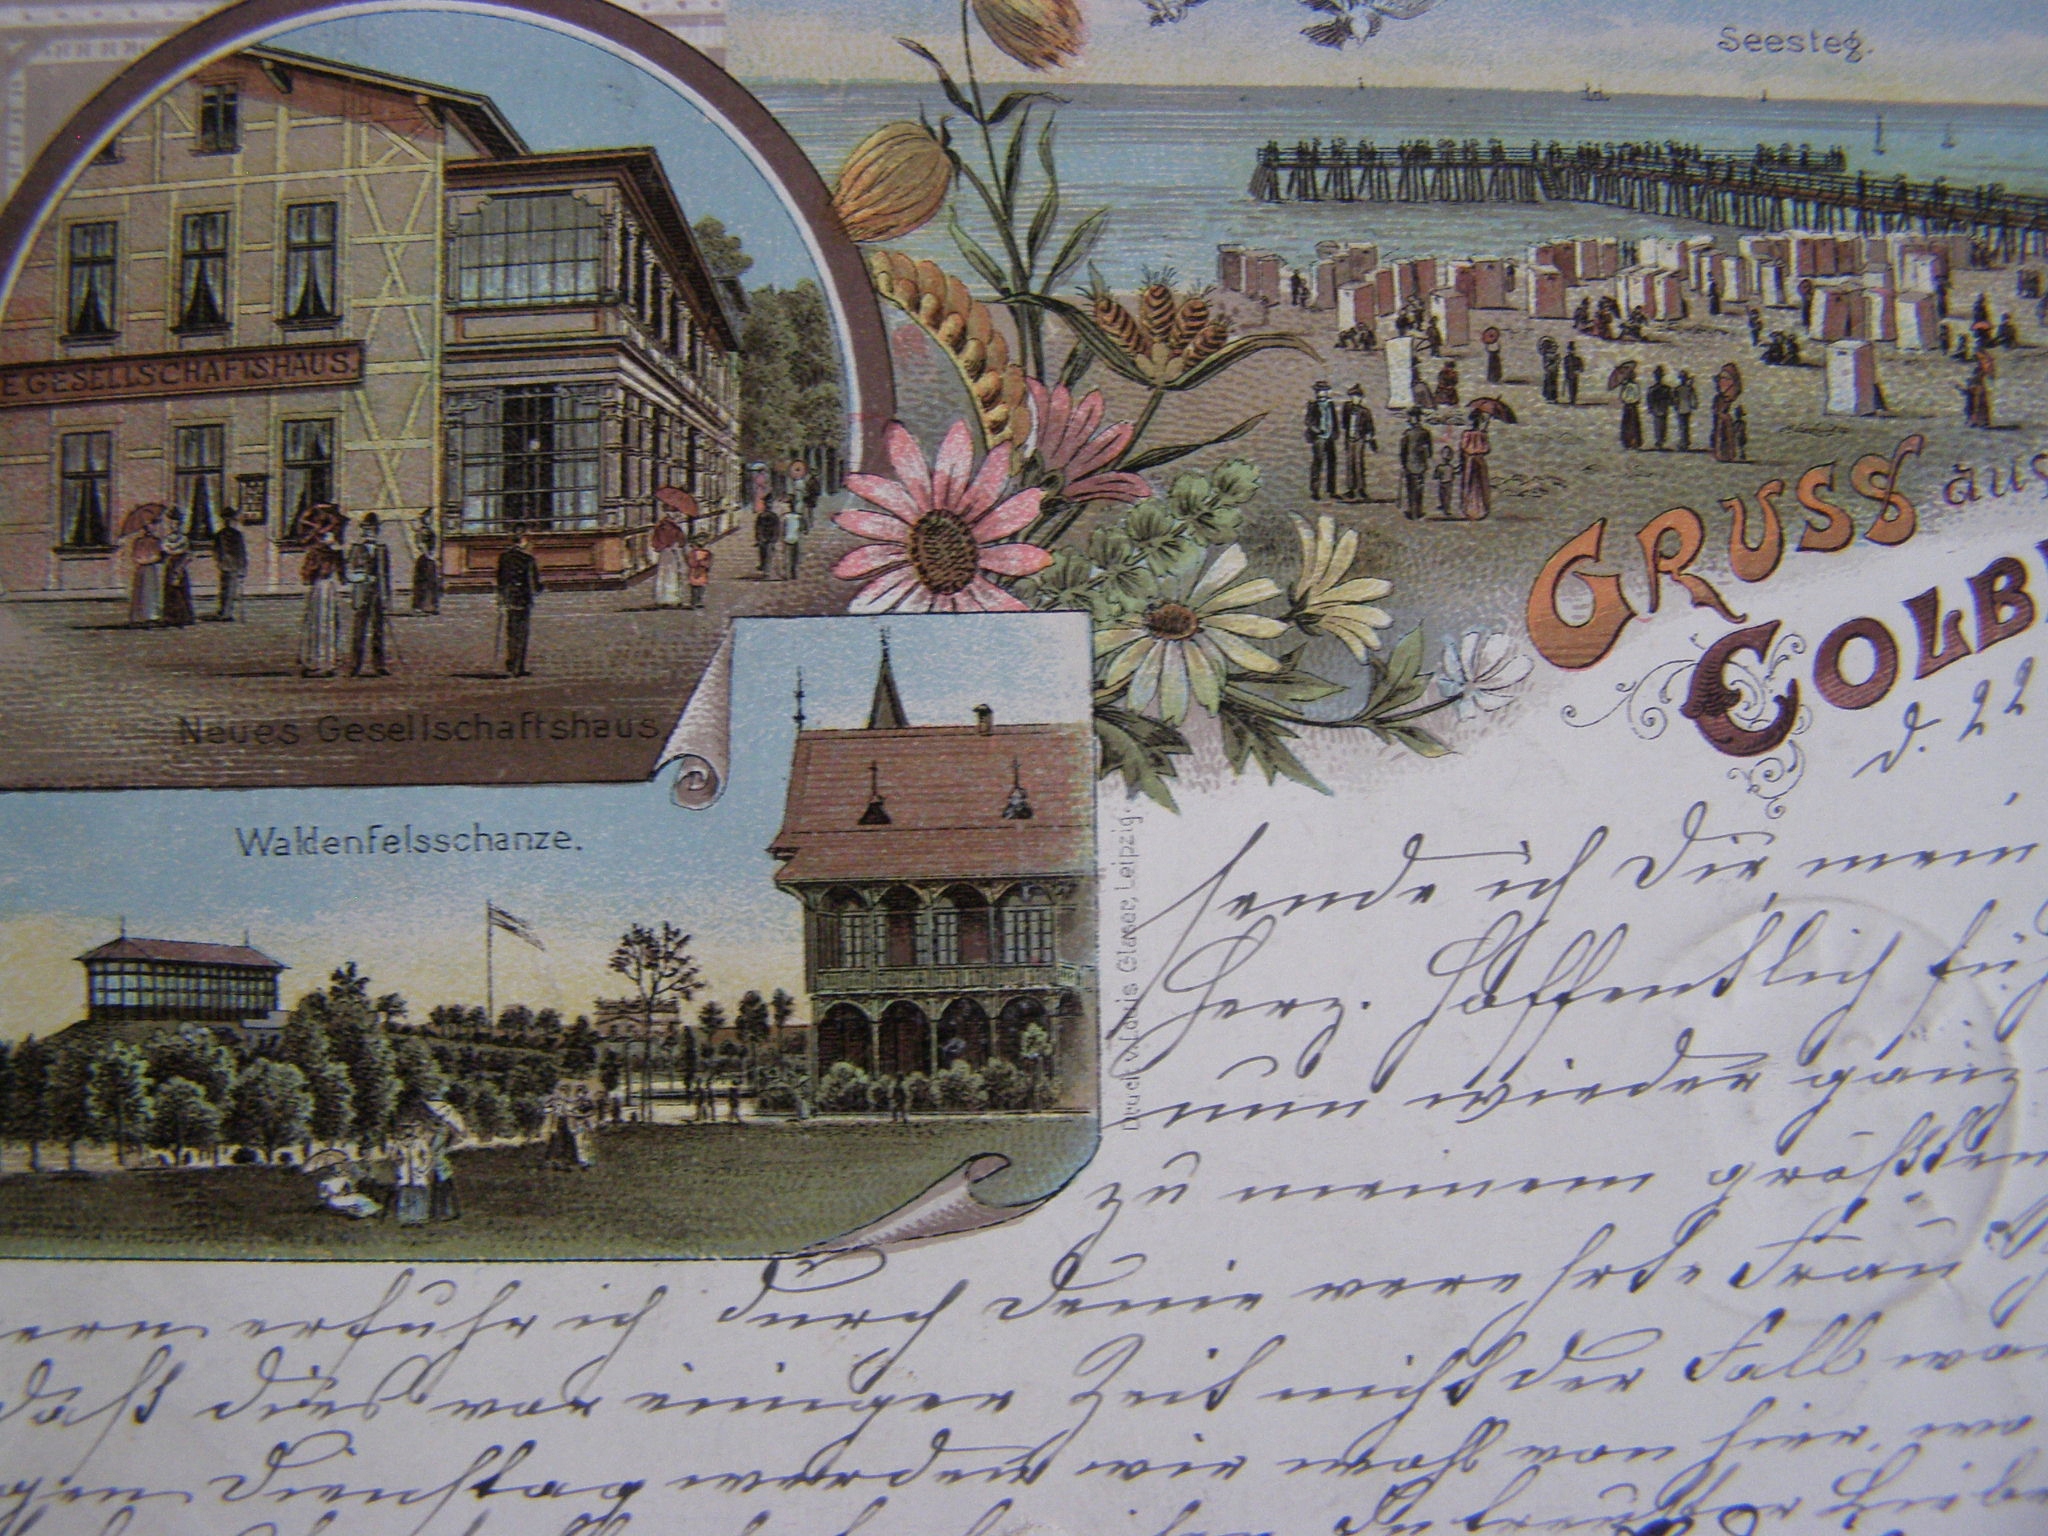 Seesteg.
E GESELLSCHAFTSHAUS.
Neues Gesellschaftshaus
GRUSS aus
COLB
d. 22
Waldenfelsschanze.
Druck v. Louis Glaser, Leipzig.
sende ich Dir, mein
Herz. Hoffentlich
nun wieder ganz
zu meinem größten
ern erfuhr ich durch Deine verehrte Frau
daß dies vor einiger Zeit nicht der Fall war
gen Dienstag werden wir wohl von hier, wo